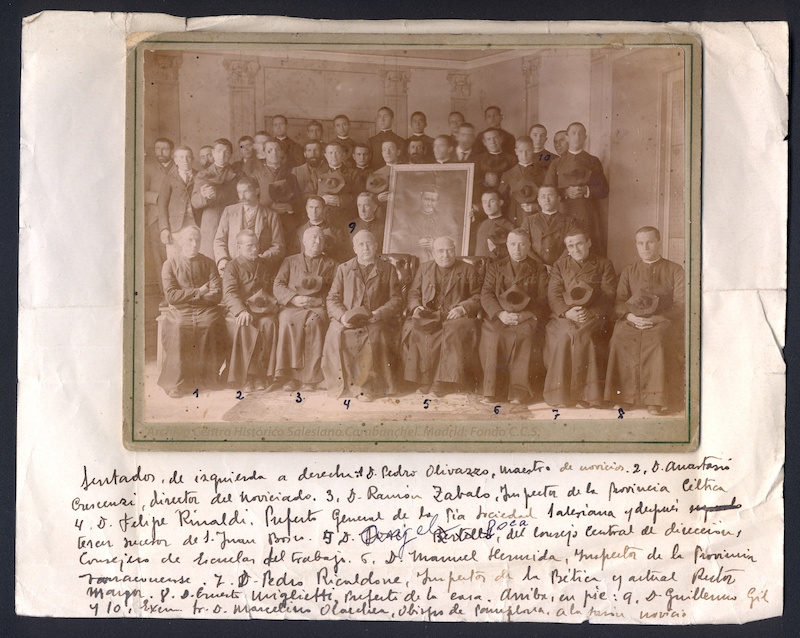 10
9
1 2 3 4 5 6 7 8
Archivo Centro Histórico Salesiano Carabanchel. Madrid. Fondo C.C.S.
Sentados, de izquierda a derecha: 1 D. Pedro Olivazzo, maestro de novicios. 2, D. Anastasio
Crescenzi, director del noviciado. 3, D. Ramón Zabalo, Inspector de la Provincia Céltica
4. D. Felipe Rinaldi. Prefecto General de la Pía Sociedad Salesiana y después
tercer sucesor de S. Juan Bosco. 5 D. Bertello, del consejo Central de dirección,
Consejero de Escuelas del trabajo. 6, D. Manuel Hermida, Inspector de la Provincia
Tarraconense. 7. D. Pedro Ricaldone, Inspector de la Bética y actual Rector
Mayor. 8. D. Ernesto Miglietti, Prefecto de la casa. Arriba, en pie: 9, D. Guillermo Gil
y 10, Excm. Sr. D. Marcelino Olaechea, Obispo de Pamplona, a la sazón novicio